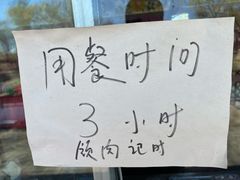 用餐时间
3小时
领肉记时